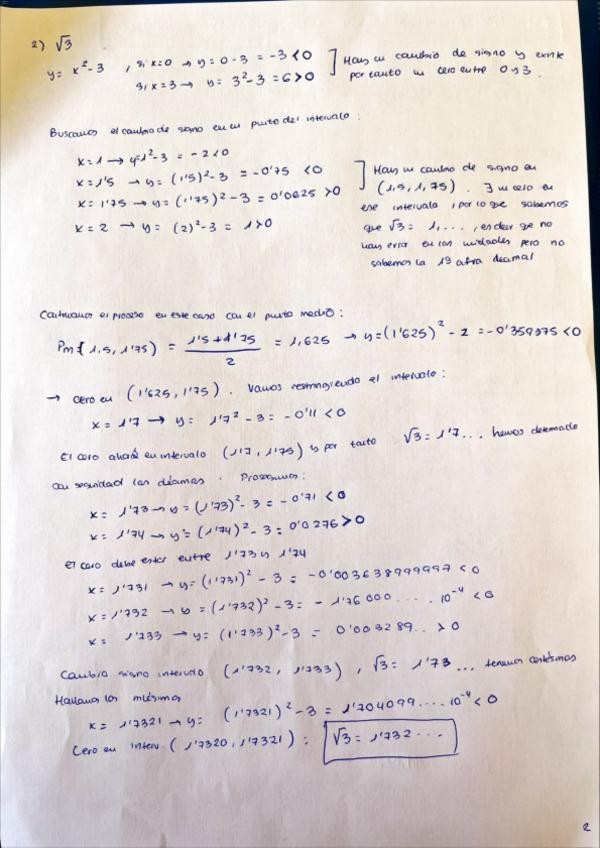 2) √3
y = x² - 3 , si x=0 → y = 0 - 3 = -3 < 0 ] Hay un cambio de signo y existe
si x = 3 → y = 3² - 3 = 6 > 0 por tanto un cero entre 0 y 3.
Buscamos el cambio de signo en un punto del intervalo:
x = 1 → y = 1² - 3 = -2 < 0
x = 1'5 → y = (1'5)² - 3 = -0'75 < 0
x = 1'75 → y = (1'75)² - 3 = 0'0625 > 0
x = 2 → y = (2)² - 3 = 1 > 0
] Hay un cambio de signo en
(1,5, 1,75). ∃ un cero en
ese intervalo, por lo que sabemos
que √3 = 1,..., es decir que no
hay error en las unidades pero no
sabemos la 1ª cifra decimal
Continuamos el proceso en este caso con el punto medio:
Pm{1,5, 1'75) = 1'5 + 1'75 / 2 = 1,625 → y = (1'625)² - 2 = -0'359375 < 0
→ cero en (1'625, 1'75). Vamos restringiendo el intervalo:
x = 1'7 → y = 1'7² - 3 = -0'11 < 0
El cero ahora en intervalo (1'7, 1'75) y por tanto √3 = 1'7... hemos determinado
con seguridad las décimas. Proseguimos:
x = 1'73 → y = (1'73)² - 3 = -0'71 < 0
x = 1'74 → y = (1'74)² - 3 = 0'0276 > 0
El cero debe estar entre 1'73 y 1'74
x = 1'731 → y = (1'731)² - 3 = -0'003638999997 < 0
x = 1'732 → y = (1'732)² - 3 = -1'76000..... 10⁻⁴ < 0
x = 1'733 → y = (1'733)² - 3 = 0'003289.. > 0
Cambio signo intervalo (1'732, 1'733), √3 = 1'73... tenemos centésimas
Hallamos las milésimas
x = 1'7321 → y = (1'7321)² - 3 = 1'704099.... 10⁻⁴ < 0
Cero en interv. (1'7320, 1'7321): √3 = 1'732...
2